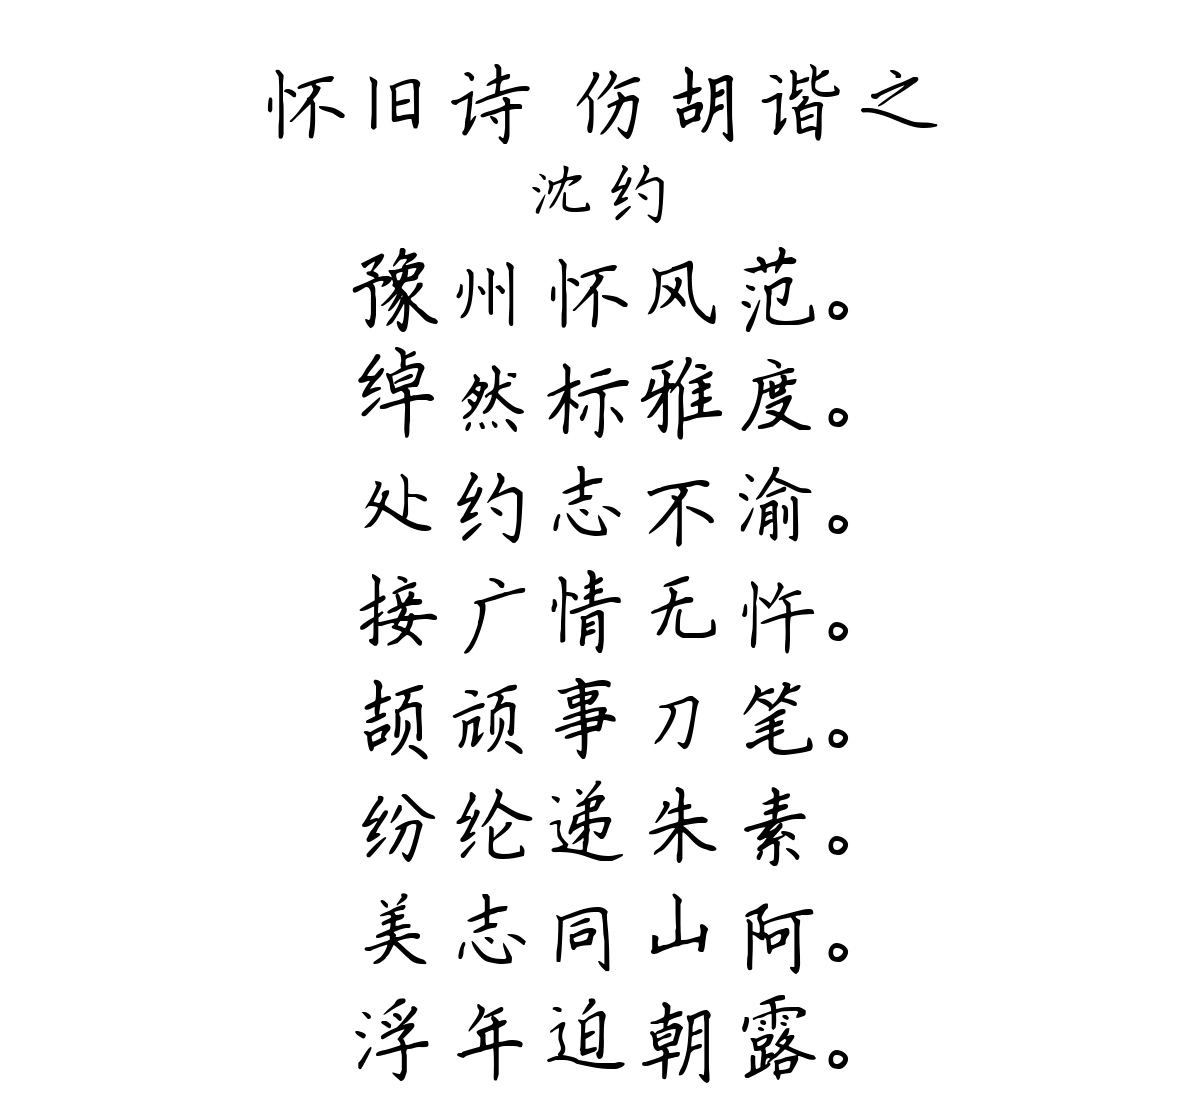 怀旧诗 伤胡谐之
沈约
豫州怀风范。
绰然标雅度。
处约志不渝。
接广情无忤。
颉颃事刀笔。
纷纶递朱素。
美志同山阿。
浮年迫朝露。